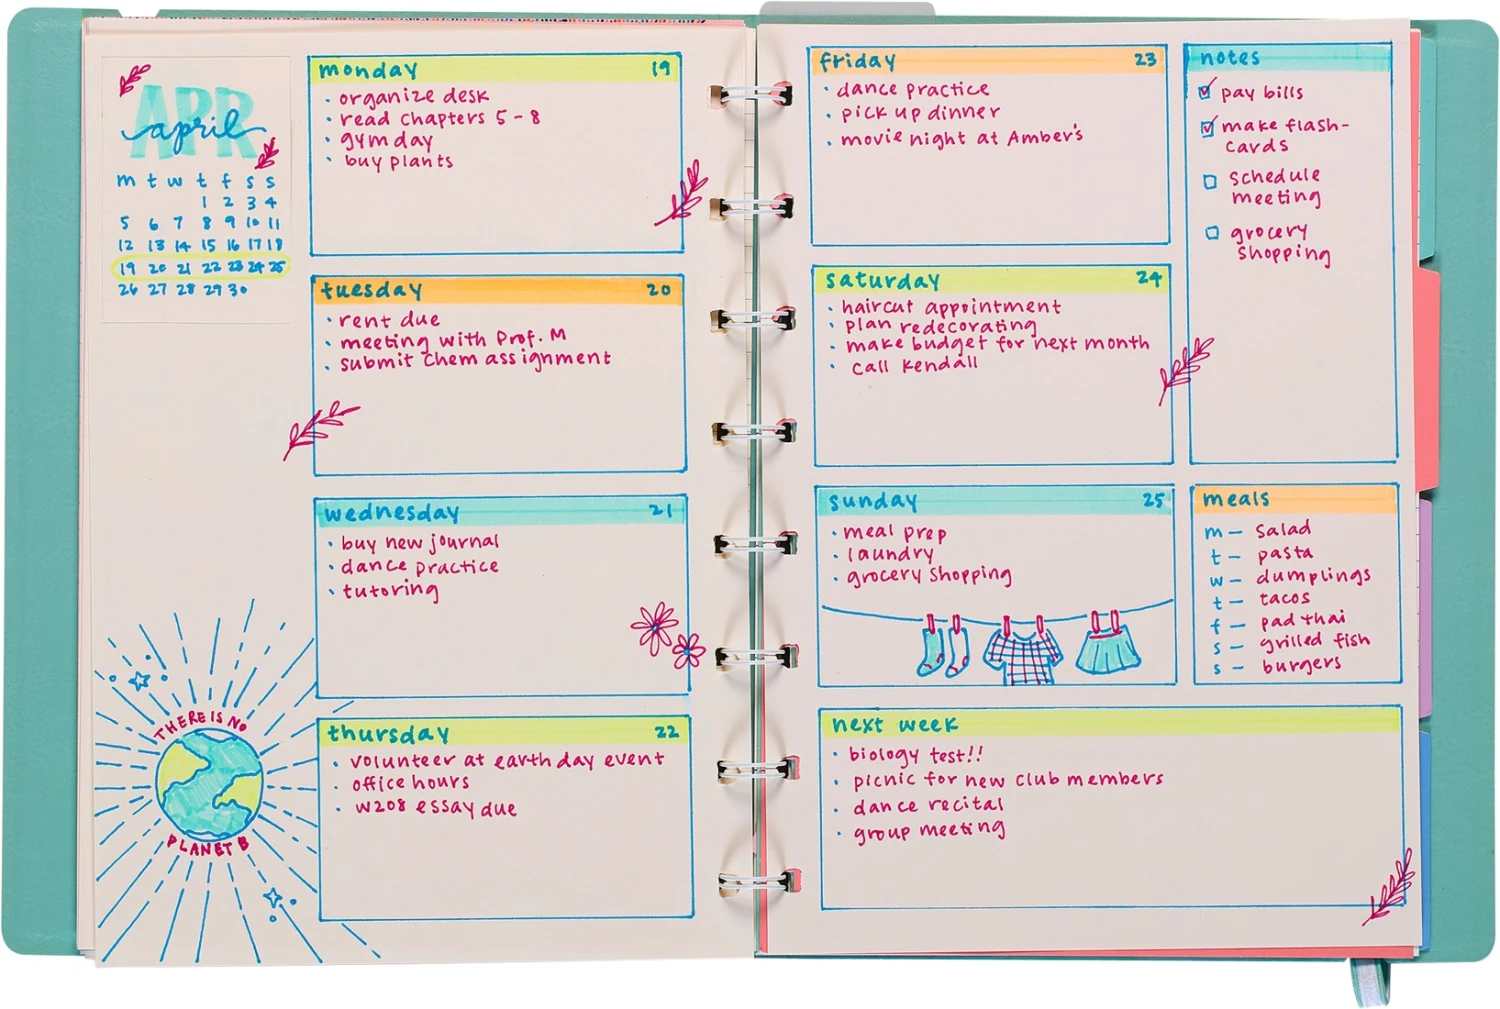 APR
april
m t w t f s s
1 2 3 4
5 6 7 8 9 10 11
12 13 14 15 16 17 18
19 20 21 22 23 24 25
26 27 28 29 30
monday 19
• organize desk
• read chapters 5-8
• gym day
• buy plants
tuesday 20
• rent due
• meeting with Prof. M
• submit chem assignment
wednesday 21
• buy new journal
• dance practice
• tutoring
thursday 22
• volunteer at earth day event
• office hours
• W208 essay due
THERE IS NO
PLANET B
friday 23
• dance practice
• pick up dinner
• movie night at Amber's
saturday 24
• haircut appointment
• plan redecorating
• make budget for next month
• call Kendall
sunday 25
• meal prep
• laundry
• grocery shopping
notes
pay bills
make flash-
cards
schedule
meeting
grocery
shopping
meals
m - salad
t - pasta
w - dumplings
t - tacos
f - pad thai
s - grilled fish
s - burgers
next week
• biology test!!
• picnic for new club members
• dance recital
• group meeting